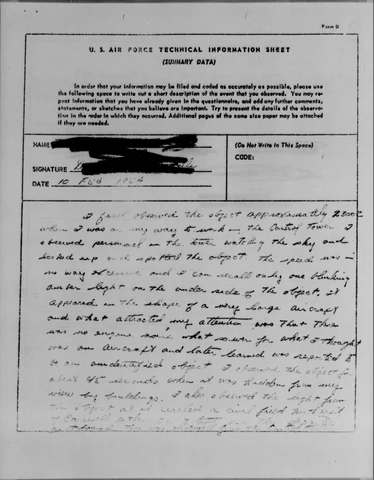 Form B
U. S. AIR FORCE TECHNICAL INFORMATION SHEET
(SUMMARY DATA)
In order that your information may be filed and coded as accurately as possible, please use
the following space to write out a short description of the event that you observed. You may re-
peat information that you have already given in the questionnaire, and add any further comments,
statements, or sketches that you believe are important. Try to present the details of the observa-
tion in the order in which they occurred. Additional pages of the same size paper may be attached
if they are needed.
NAME
(Do Not Write in This Space)
CODE:
SIGNATURE
DATE 10 Feb
I first observed the object approximately 2300
when I was on my way to work in the Control Tower I
observed personnel in the tower watching the sky and
looked up and spotted the object. The speed was in
no way excessive and I can recall only one blinking
amber light on the under side of the object. it
appeared in the shape of a very large aircraft
and what attracted my attention was that there
was no engine noise what so ever for what I thought
was an aircraft and later learned was reported to
be an unidentified object I observed the object for
about 45 seconds when it was hidden from my
view by buildings. I also observed the light from
the object as it circled a civil field